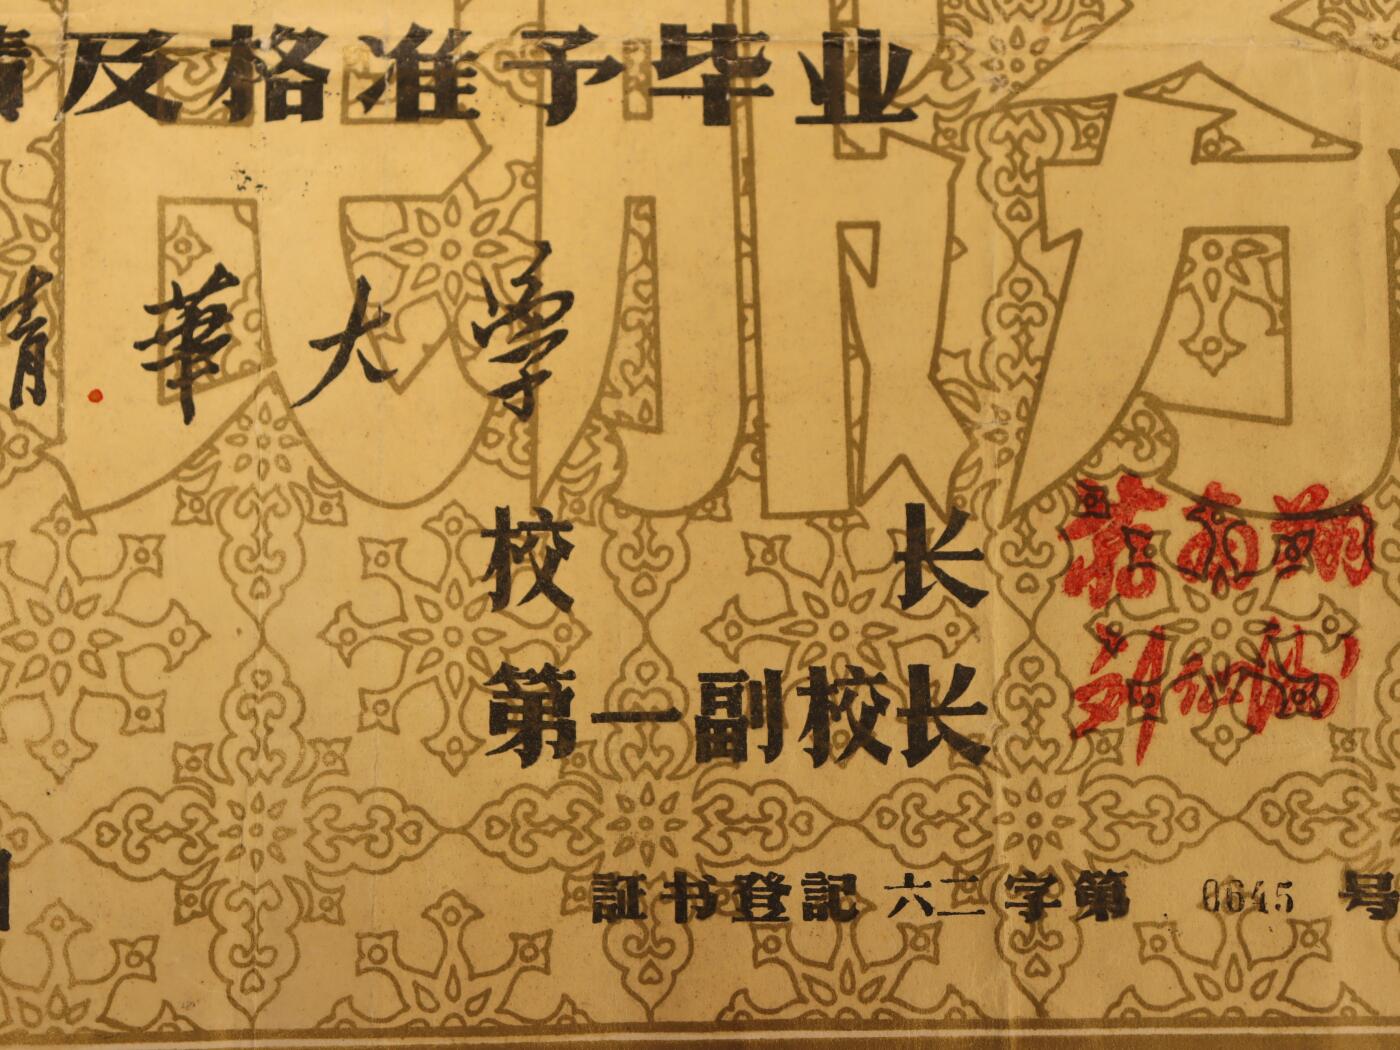 及格准予毕业
清華大学
校长 蒋南翔
第一副校长 刘仙洲
証书登記六二字第 0645 号